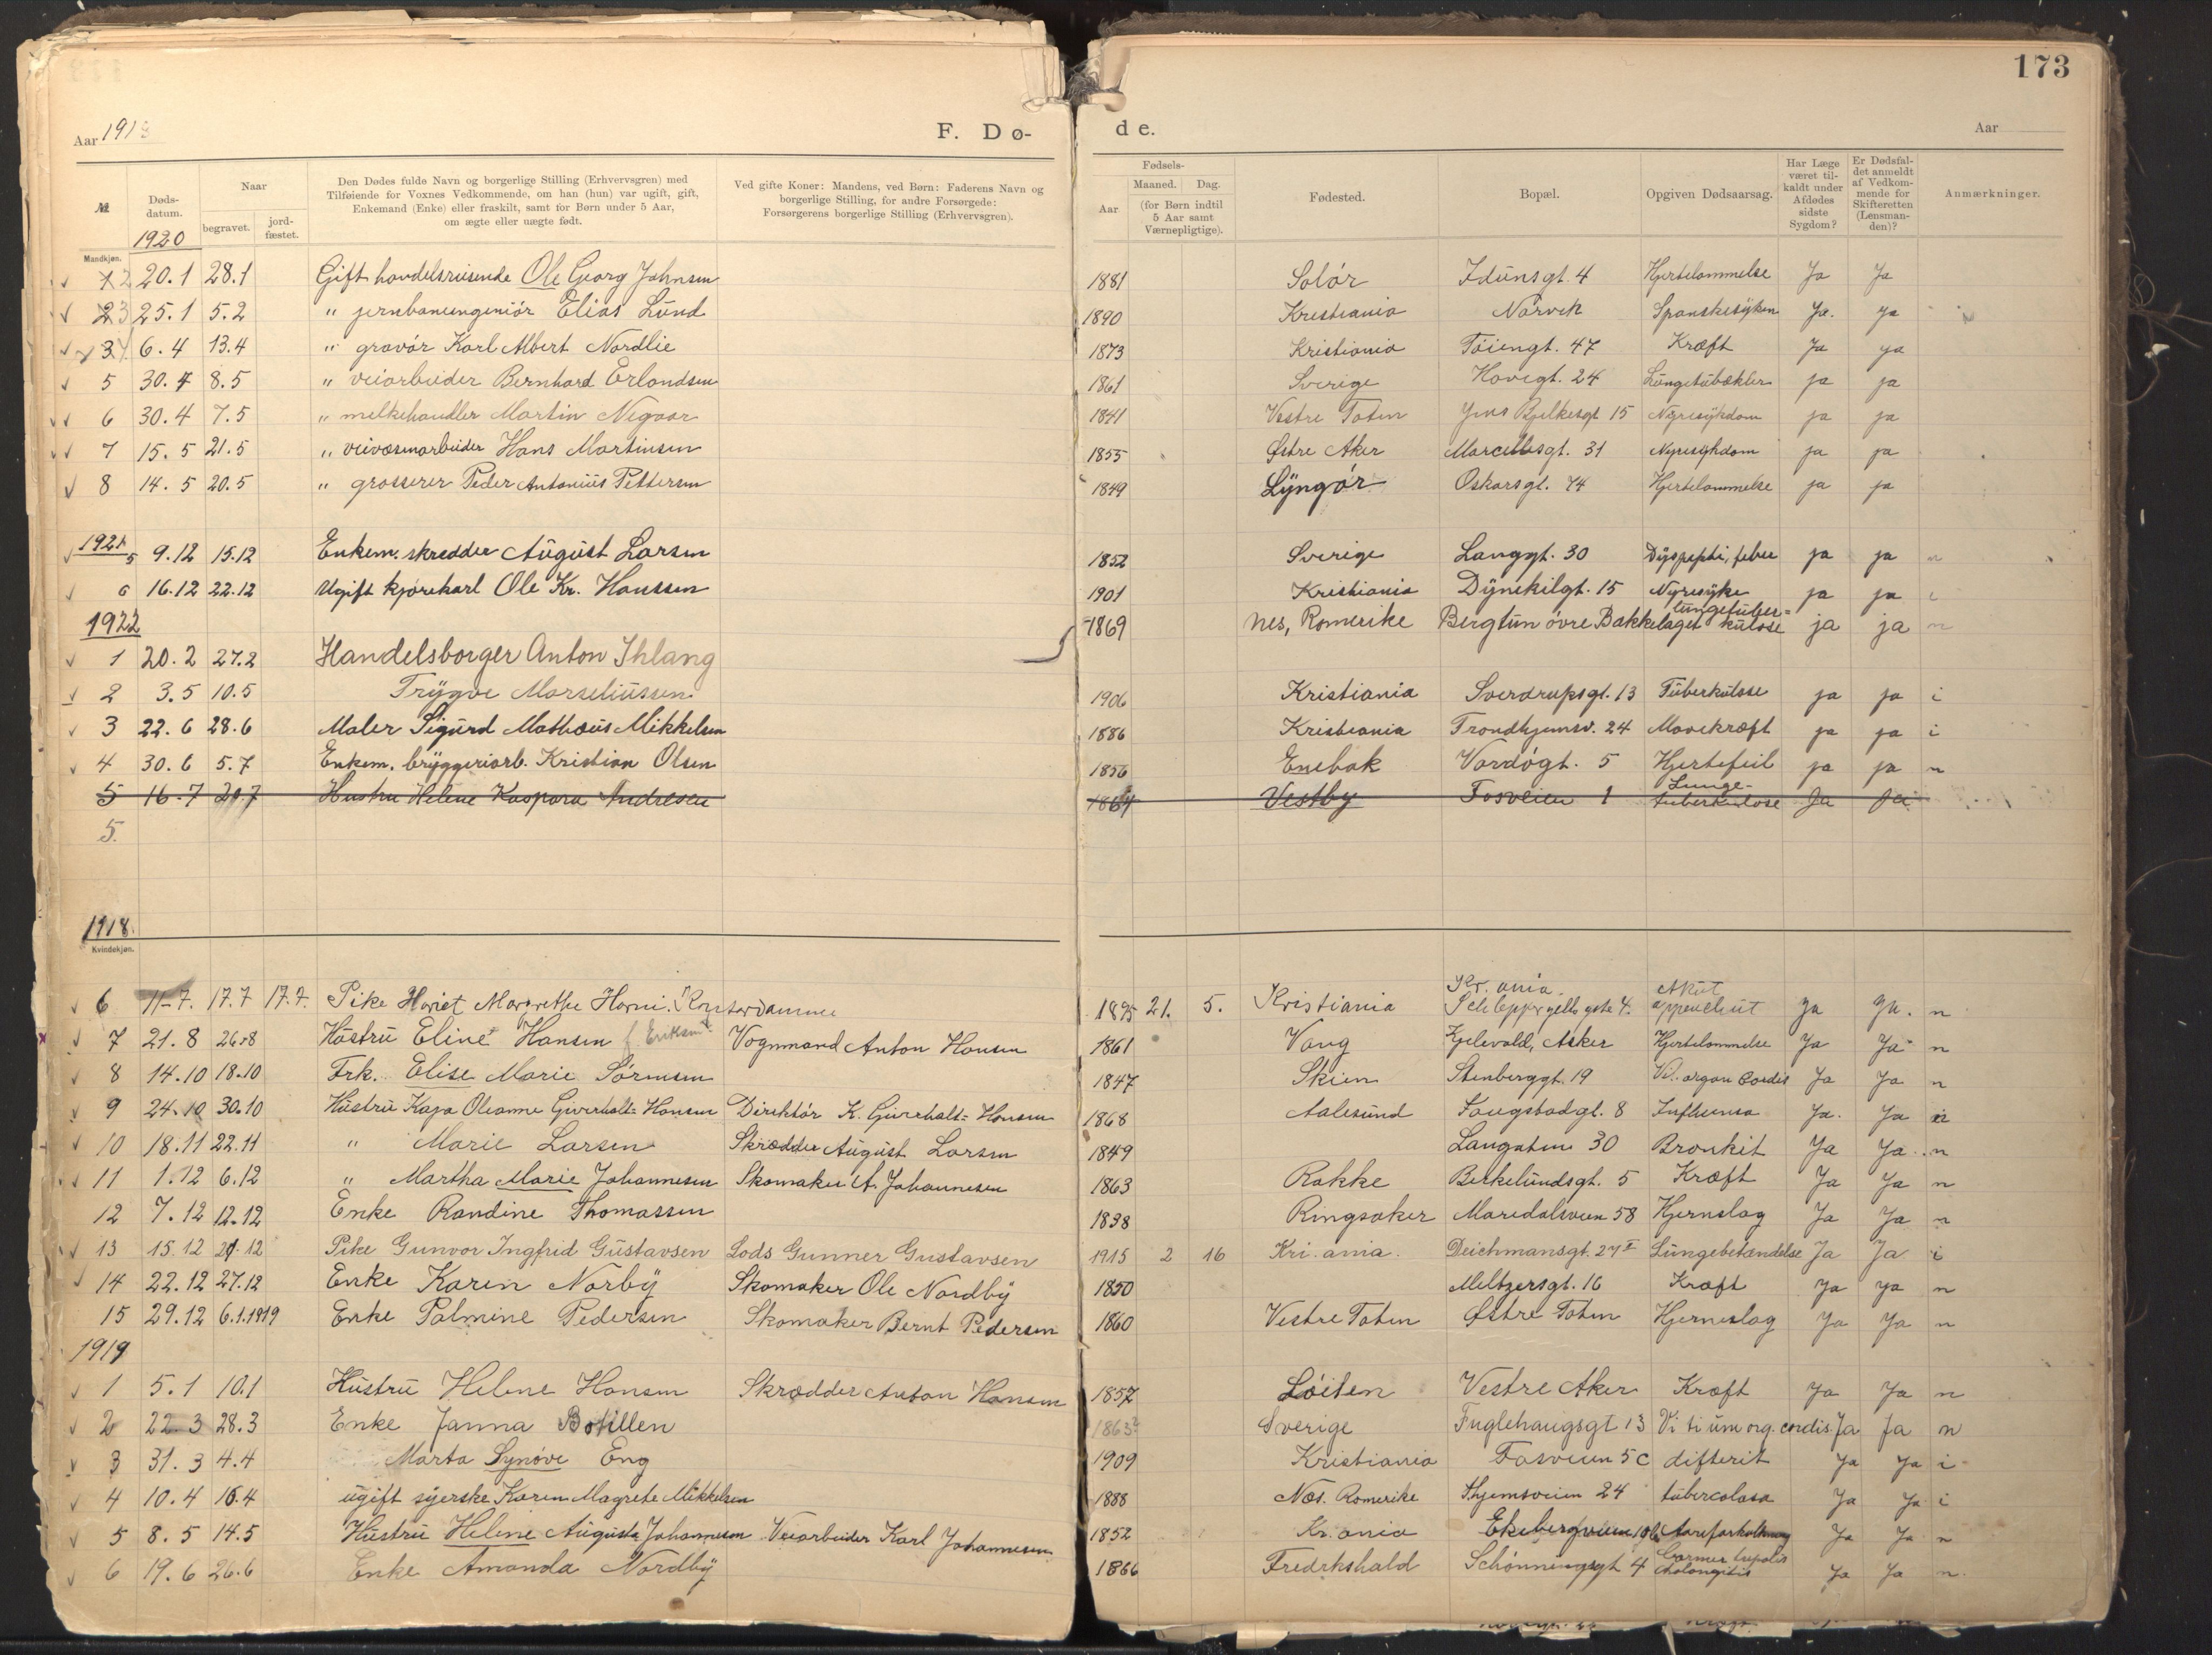 173
Aar 191
F. Dø-
de.
Aar
№
Døds-
datum.
1920
Naar
begravet.
jord-
fæstet.
Den Dødes fulde Navn og borgerlige Stilling (Erhvervsgren) med
Tilføiende for Voxnes Vedkommende, om han (hun) var ugift, gift,
Enkemand (Enke) eller fraskilt, samt for Børn under 5 Aar,
om ægte eller uægte født.
Ved gifte Koner: Mandens, ved Børn: Faderens Navn og
borgerlige Stilling, for andre Forsørgede:
Forsørgerens borgerlige Stilling (Erhvervsgren).
Fødsels-
Aar
Maaned. Dag.
(for Børn indtil
5 Aar samt
Værnepligtige).
Fødested.
Bopæl.
Opgiven Dødsaarsag.
Har Læge
været til-
kaldt under
Afdødes
sidste
Sygdom?
Er Dødsfal-
det anmeldt
af Vedkom-
mende for
Skifteretten
(Lensman-
den)?
Anmærkninger.
Mandkjøn.
2 20.1 28.1 Gift handelsreisende Ole Georg Johnsen 1881 Solør Idunsgt. 4 Hjertelammelse Ja Ja
3 25.1 5.2 " jernbaneingeniør Elias Lund 1890 Kristiania Narvik Spanskesyken Ja. ja
6.4 13.4 " gravør Karl Albert Nordlie 1873 Kristiania Tøiengt. 47 Kræft Ja ja
5 30.4 8.5 " veiarbeider Bernhard Erlandsen 1861 Sverige Havegt. 24 Lungetubekler ja ja
6 30.4 7.5 " melkehandler Martin Negaar 1841 Vestre Toten Jens Bjelkesgt 15 Nyresykdom ja ja
7 15.5 21.5 " veivæsenarbeider Hans Martinsen 1855 Østre Aker Marcellisgt. 31 Nyresykdom ja ja
8 14.5 20.5 " grosserer Peder Antonius Pettersen 1849 Lyngør Oskarsgt. 74 Hjertelammelse ja ja
1921
5 9.12 15.12 Enkem. skrædder August Larsen 1852 Sverige Langgt. 30 Dyspepsi, feber ja ja n
6 16.12 22.12 Ugift kjørekarl Ole Kr. Hanssen 1901 Kristiania Dynekilgt. 15 Nyresyke ja ja i
1922
1 20.2 27.2 Handelsborger Anton Ihlang 1869 Nes, Romerike Bergtun øvre Bakkelaget lungetuber=kulose ja ja n
2 3.5 10.5 Trygve Marseliussen 1906 Kristiania Sverdrupsgt. 13 Tuberkulose ja ja i
3 22.6 28.6 Maler Sigurd Mathæus Mikkelsen 1886 Kristiania Trondhjemsv. 24 Mavekræft ja ja i
4 30.6 5.7 Enkem. bryggeriarb. Kristian Olsen 1856 Enebak Vardøgt. 5 Hjertefeil ja ja n
5 16.7 20.7 Hustru Helene Kaspara Andresen 1864 Vestby Fosveien 1 Lunge-tuberkulose Ja Ja
5.
1918.
Kvindekjøn.
6 11-7. 17.7 17.7. Pike Hariet Margrethe Horni. Kontordamme 1895 21. 5. Kristiania Kr.ania. Schleppegrells gate 4. Akut Ja Ja. n
7 21.8 26.8 Hustru Eline Hansen f. Eriksen Vognmand Anton Hansen 1861 Vang Kjelevold, Asker Hjertelammelse Ja Ja n
8 14.10 18.10 Frk. Elise Marie Sørensen 1847 Skien Stenberggt. 19 Vit. organ Cordis Ja Ja n
9 24.10 30.10 Hustru Kaja Oleanne Giverholt=Hansen Direktør K. Giverholt=Hansen 1868 Aalesund Saugstadgt. 8 Influensa Ja. Ja n
10 18.11 22.11 " Marie Larsen Skrædder August Larsen 1849 Langaten 30 Bronkit Ja Ja n
11 1.12 6.12 " Martha Marie Johannesen Skomaker A. Johannesen 1863 Rakke Birkelundsgt. 5 Kræft Ja Ja n
12 7.12 12.12 Enke Randine Thomassen 1838 Ringsaker Maridalsveien 58 Hjerneslag Ja Ja n
13 15.12 21.12 Pike Gunvor Ingfrid Gustavsen Lods Gunner Gustavsen 1915 2 16 Kri.ania. Deichmansgt. 27 II Lungebetændelse Ja Ja i
14 22.12 27.12 Enke Karen Norby Skomaker Ole Nordby 1850 Meltzersgt. 16 Kræft Ja ja n
15 29.12 6.1.1919 Enke Palmine Pedersen Skomaker Bernt Pedersen 1860 Vestre Toten Østre Toten Hjerneslag Ja Ja n
1919
1 5.1 10.1 Hustru Helene Hansen Skrædder Anton Hansen 1857 Løiten Vestre Aker Kræft Ja Ja n
2 22.3 28.3 Enke Janna Botillen 1863? Sverige Fuglehaugsgt 13 Vitium org. cordis. Ja Ja n
3 31.3 4.4 Marta Synøve Eng 1909 Kristiania Fosveien 5c difterit Ja Ja i
4 10.4 16.4 ugift syerske Karen Magrete Mikkelsen 1888 Nes. Romerike Thjemsveien 24 tubercolosa Ja Ja i
5 8.5 14.5 Hustru Helene Augusta Johannesen Veiarbeider Karl Johannesen 1852 Kr.ania Ekebergveien Aareforkalkning Ja Ja n
6 19.6 26.6 Enke Amanda Nordby 1866 Fredrkshald Schønningsgt 4 Ja Ja n.